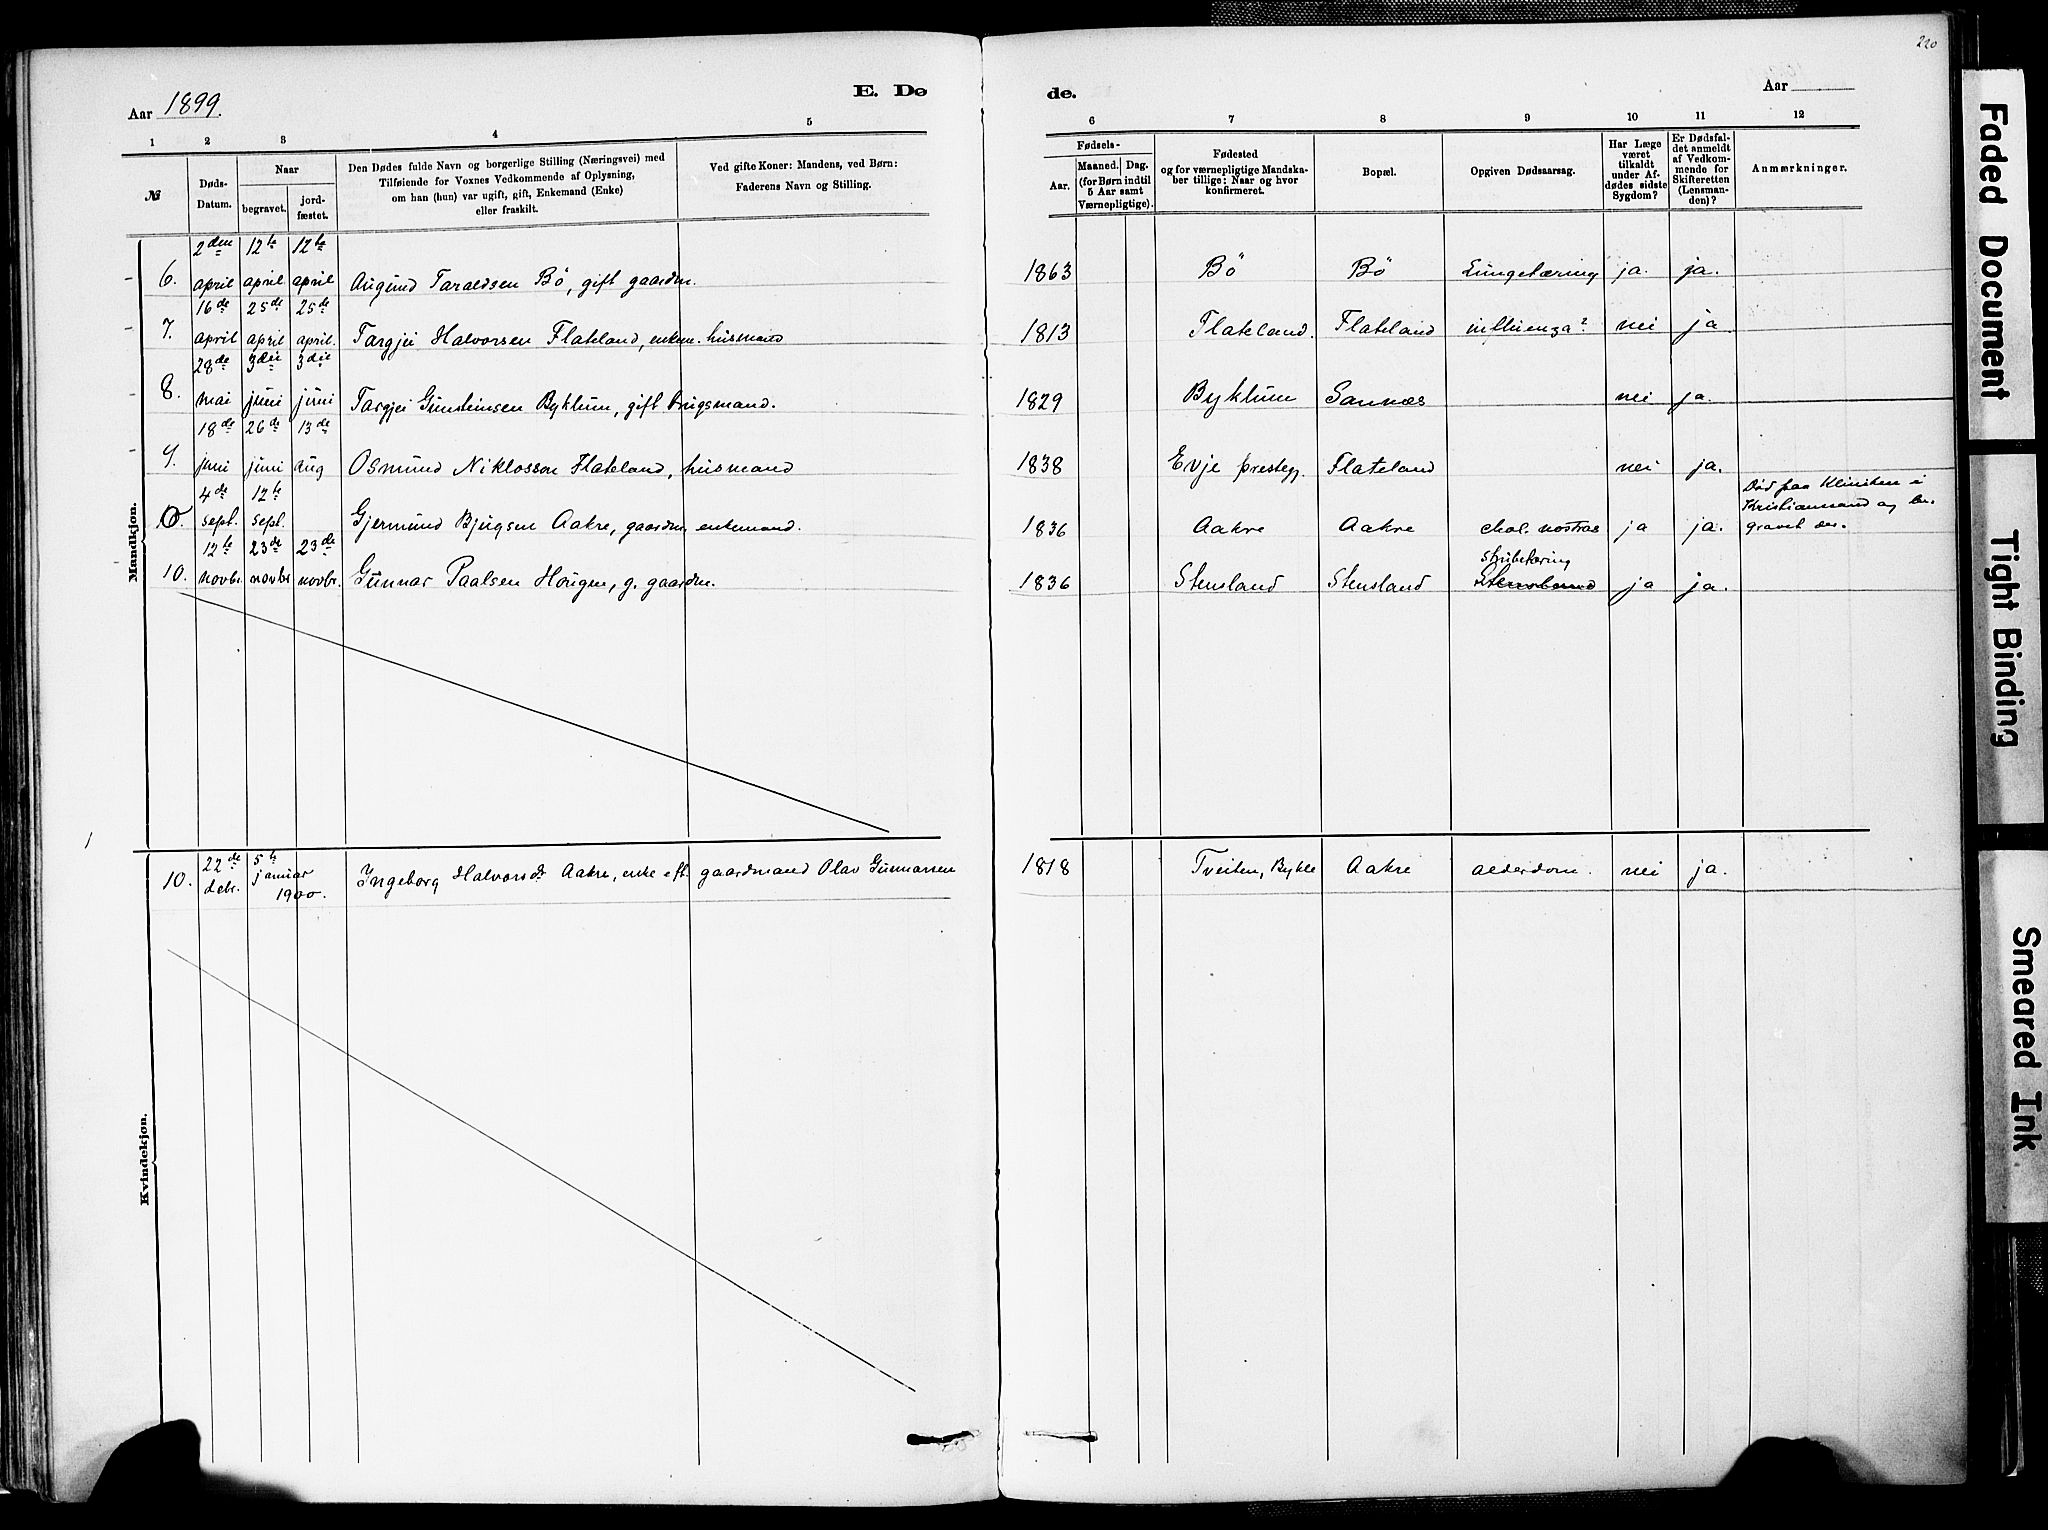 220
Aar 1899.
E. Dø
de.
Aar
1 2 3 4 5
6 7 8 9 10 11 12
№
Døds-
Datum.
Naar
begravet.
jord-
fæstet.
Den Dødes fulde Navn og borgerlige Stilling (Næringsvei) med
Tilføiende for Voxnes Vedkommende af Oplysning,
om han (hun) var ugift, gift, Enkemand (Enke)
eller fraskilt.
Ved gifte Koner: Mandens, ved Børn:
Faderens Navn og Stilling.
Fødsels-
Aar.
Maaned. Dag.
(for Børn indtil
5 Aar samt
Værnepligtige).
Fødested
og for værnepligtige Mandska-
ber tillige: Naar og hvor
konfirmeret.
Bopæl.
Opgiven Dødsaarsag.
Har Læge
været
tilkaldt
under Af-
dødes sidste
Sygdom?
Er Dødsfal-
det anmeldt
af Vedkom-
mende for
Skifteretten
(Lensman-
den)?
Anmærkninger.
Mandkjøn.
2den 12te 12te
6. april april april Augund Taraldsen Bö, gift gaardm. 1863 Bö Bö Lungetæring ja. ja.
16de 25de 25de
7. april april april. Targjei Halvorsen Flateland, enkem. husmand 1813 Flateland. Flateland influenza? nei ja
28de 3die 3die
8. mai juni juni Targjei Gunsteinsen Byklum, gift brugsmand. 1829 Byklum Sannæs nei ja.
18de 26de 13de
9. juni juni aug Osmund Niklosson Flateland, husmand 1838 Evje prestegj. Flateland nei ja.
4de 12te
10. sept. sept. Gjermund Bjugsen Aakre, gaardm. enkemand. 1836 Aakre Aakre chol. nostras ja ja.
Död paa Kliniken i
Kristianssand og be-
gravet der.
12te 23de 23de
strubetæring
10. novbr novbr novbr. Gunnar Paalsen Hougen, g. gaardm. 1836 Stensland Stensland Stensland ja ja.
Kvindekjøn.
22de 5te
10. debr. januar 1900. Ingeborg Halvorsdr Aakre, enke eft. gaardmand Olav Gunnarsen 1818 Tveiten, Bykle Aakre alderdom. nei ja.
Faded Document
Tight Binding
Smeared Ink